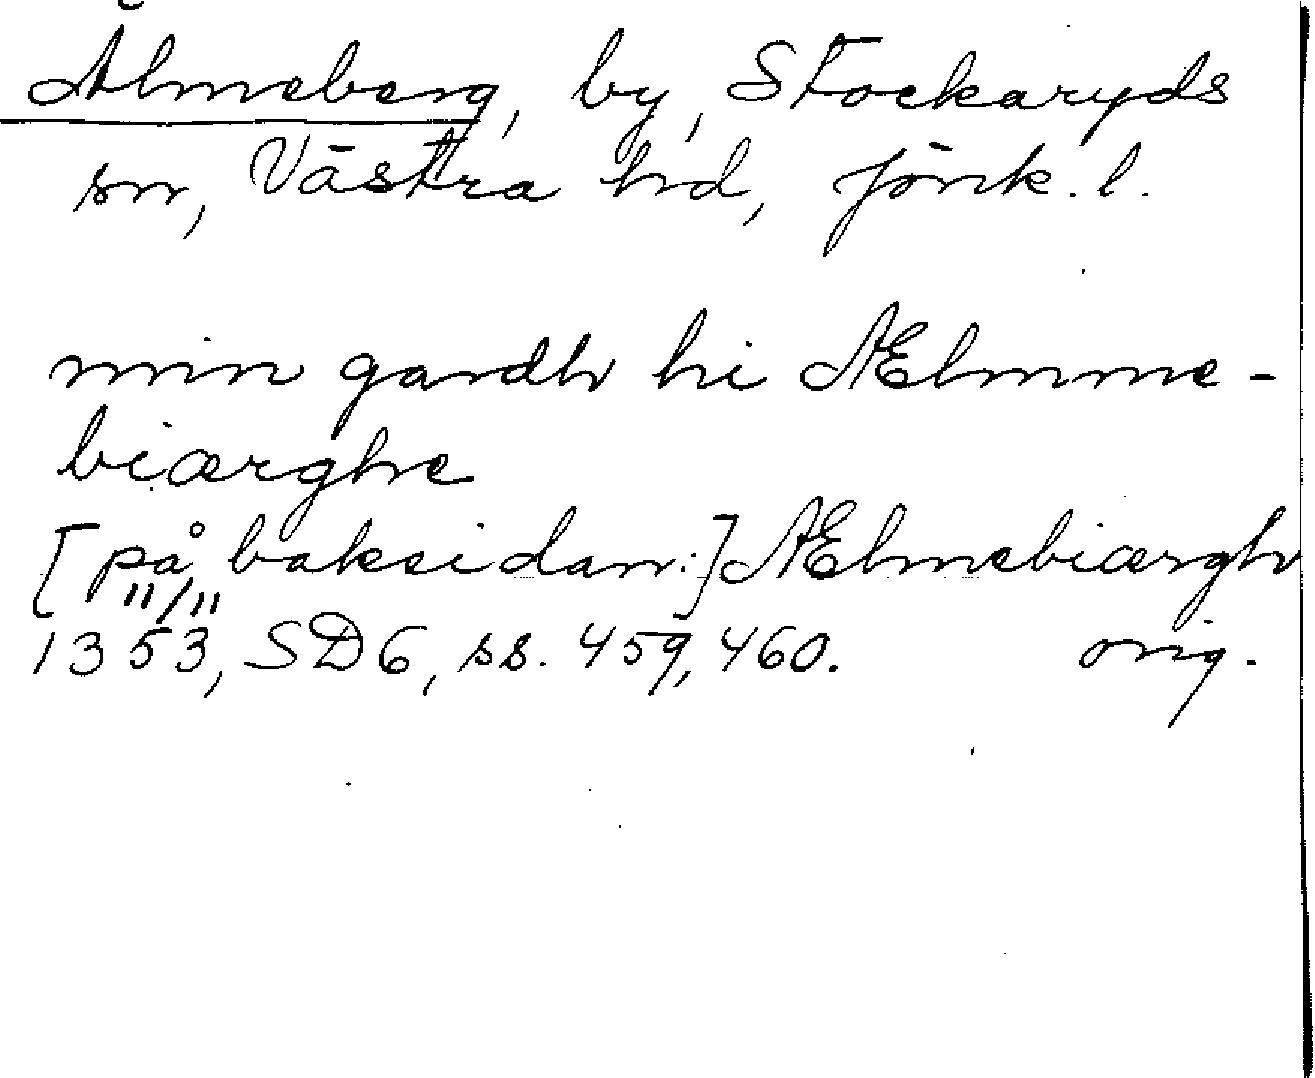 Ålmeberg, by, Stockaryds
sn, Västra hd, Jönk. l.
min gardh hi ÆElmme-
biærghe
[på baksidan:] Ælmebiærgh
11/11
1353, SD6, ss. 459, 460. orig.